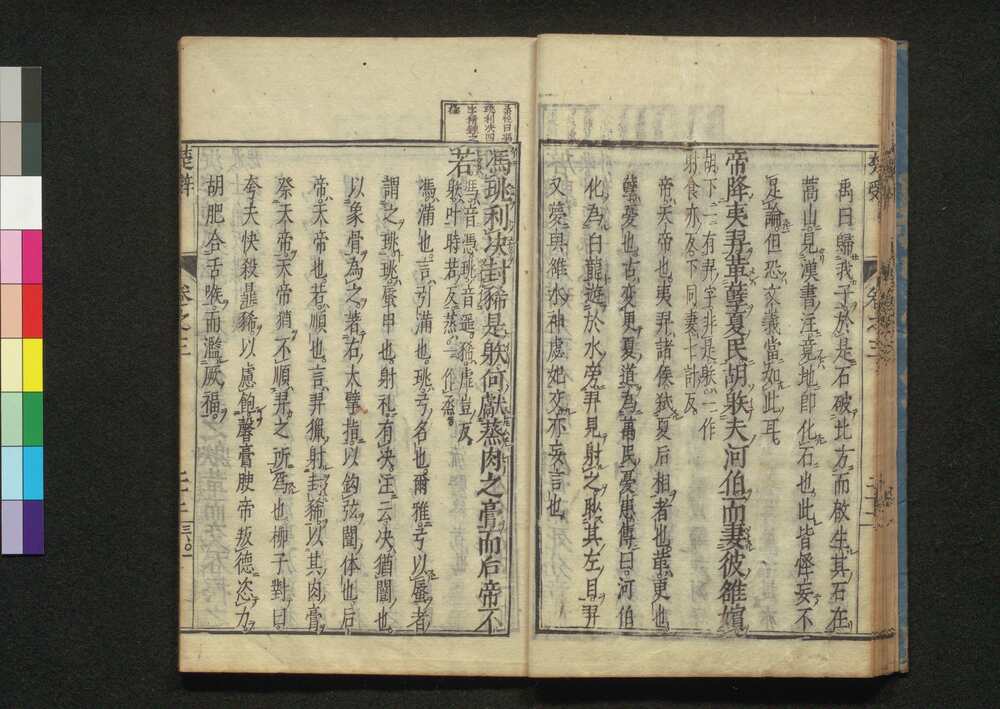 禹曰歸我子於是石破北方而啟生其石在
嵩山見漢書注竟地即化石也此皆怪妄不
足論但恐文義當如此耳
帝降夷羿革孽夏民胡䠶夫河伯而妻彼雒嬪
胡下一有羿字非是䠶一作
射食亦反下同妻七計反
帝天帝也夷羿諸侯弒夏后相者也革更也
孽憂也古變更夏道為萬民憂患傳曰河伯
化為白龍遊於水旁羿見射之眇其左目羿
又夢與雒水神虙妃交亦妄言也
馮珧利決封豨是䠶何獻蒸肉之膏而后帝不
若
馮音憑珧音遥豨虛豈反
䠶叶時若反蒸一作烝
馮滿也言引滿也珧弓名也爾雅弓以蜃者
謂之珧珧蜃甲也射禮有決注云決猶闓也
以象骨為之著右大擘指以鉤弦闓体也后
帝天帝也若順也言羿獵射封豨以其肉膏
祭天帝天帝猶不順羿之所為也柳子對曰
夸夫快殺鼎豨以慮飽馨膏腴帝叛德恣力
胡肥台舌喉而濫厥福
楚辞
卷之三